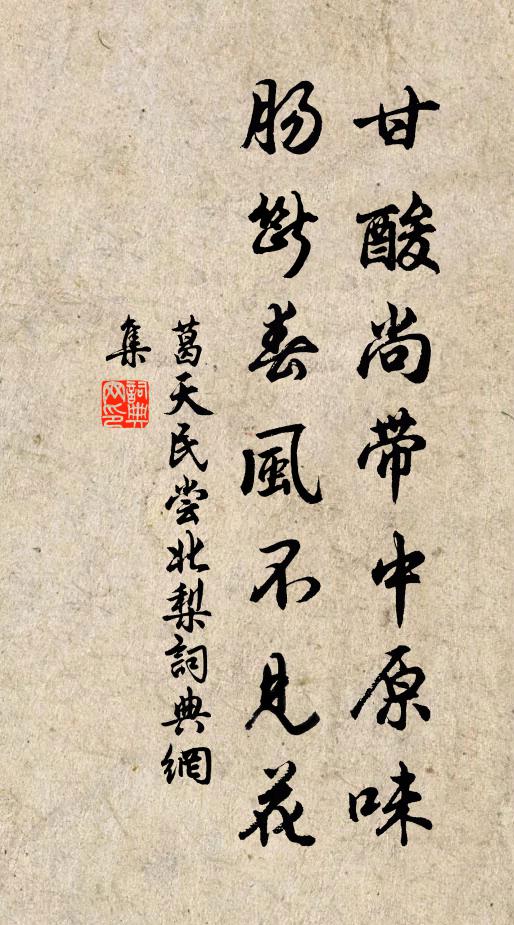 甘酸尚带中原味
肠断春風不見花
葛天民尝北梨詞典網
集
詞典网印